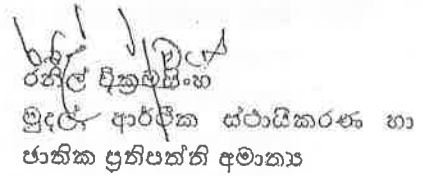 රනිල් වික්‍රමසිංහ
මුදල්, ආර්ථික ස්ථායිකරණ හා
ජාතික ප්‍රතිපත්ති අමාත්‍ය